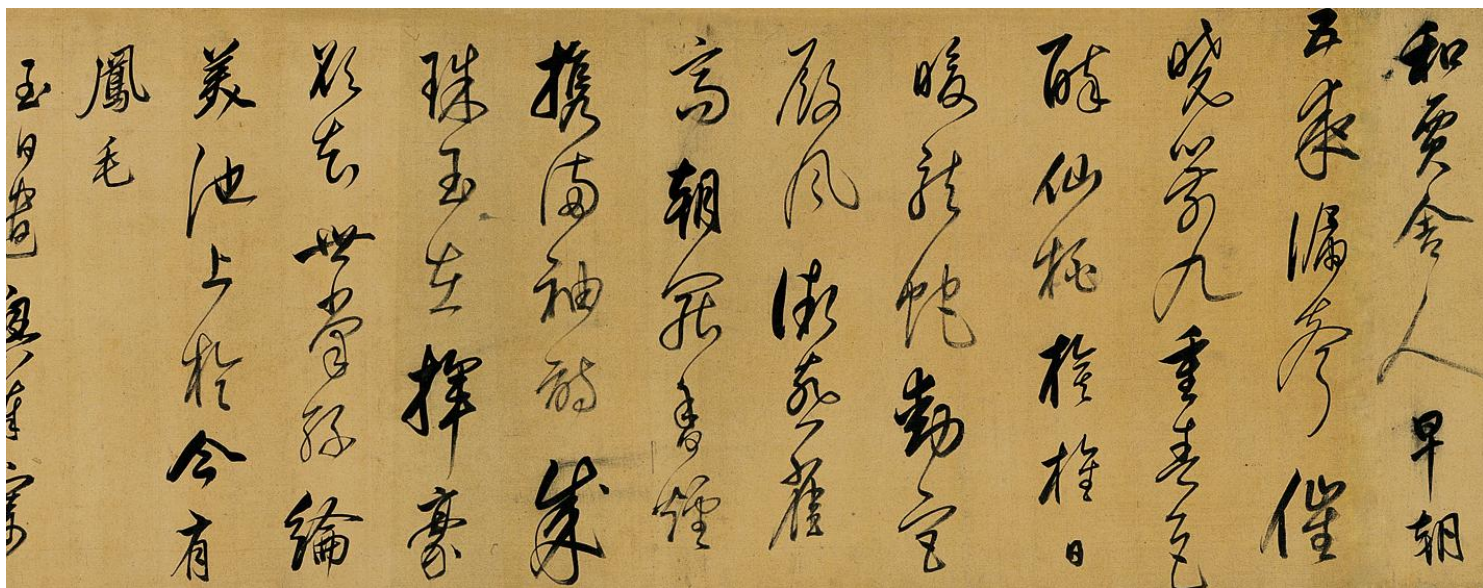 和賈舍人早朝
五夜漏聲催
曉箭九重春色
醉仙桃旌旗日
暖龍蛇動宮
殿風微燕雀
高朝罷香煙
携滿袖詩成
珠玉在揮豪
欲知世掌絲綸
美池上於今有
鳳毛